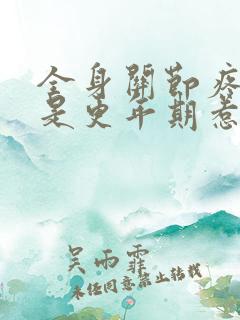 全身關節疼
是更年期惹
吳雨霏
未经同意禁止转载